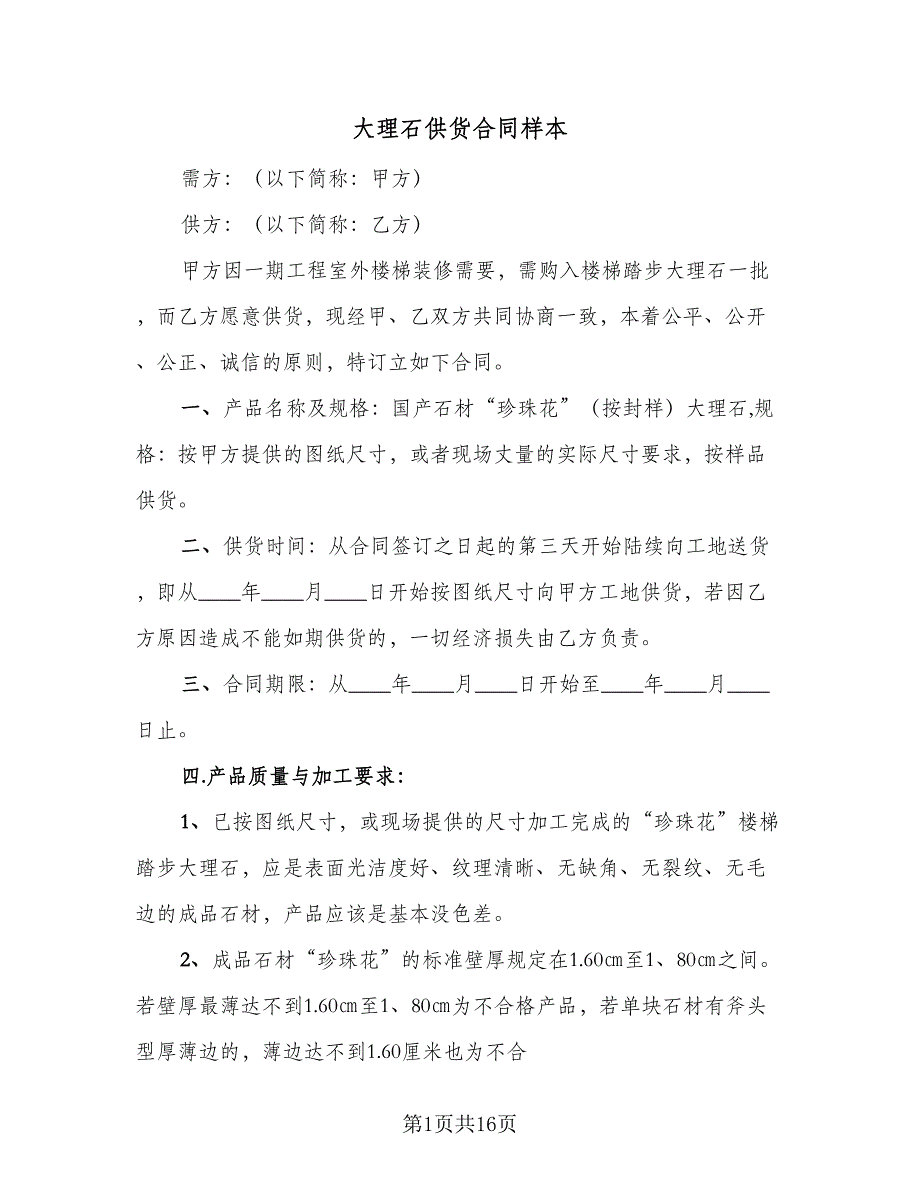 大理石供货合同样本
需方：（以下简称：甲方）
供方：（以下简称：乙方）
甲方因一期工程室外楼梯装修需要，需购入楼梯踏步大理石一批
，而乙方愿意供货，现经甲、乙双方共同协商一致，本着公平、公开
、公正、诚信的原则，特订立如下合同。
一、产品名称及规格：国产石材“珍珠花”（按封样）大理石,规
格：按甲方提供的图纸尺寸，或者现场丈量的实际尺寸要求，按样品
供货。
二、供货时间：从合同签订之日起的第三天开始陆续向工地送货
，即从____年____月____日开始按图纸尺寸向甲方工地供货，若因乙
方原因造成不能如期供货的，一切经济损失由乙方负责。
三、合同期限：从____年____月____日开始至____年____月____
日止。
四.产品质量与加工要求：
1、已按图纸尺寸，或现场提供的尺寸加工完成的“珍珠花”楼梯
踏步大理石，应是表面光洁度好、纹理清晰、无缺角、无裂纹、无毛
边的成品石材，产品应该是基本没色差。
2、成品石材“珍珠花”的标准壁厚规定在1.60㎝至1、80㎝之间。
若壁厚最薄达不到1.60㎝至1、80㎝为不合格产品，若单块石材有斧头
型厚薄边的，薄边达不到1.60厘米也为不合
第1页共16页